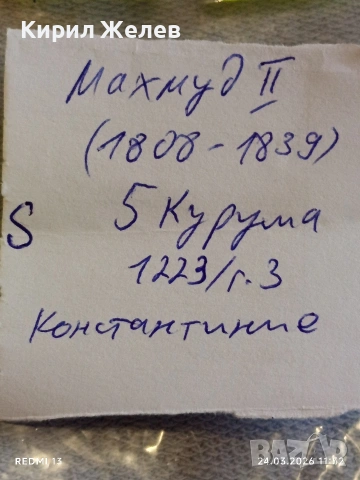 Кирил Желев
Махмуд II
(1808-1839)
S
5 Курума
1223/г.3
Константиние
REDMI 13
24.03.2026 11:12
BAZAR